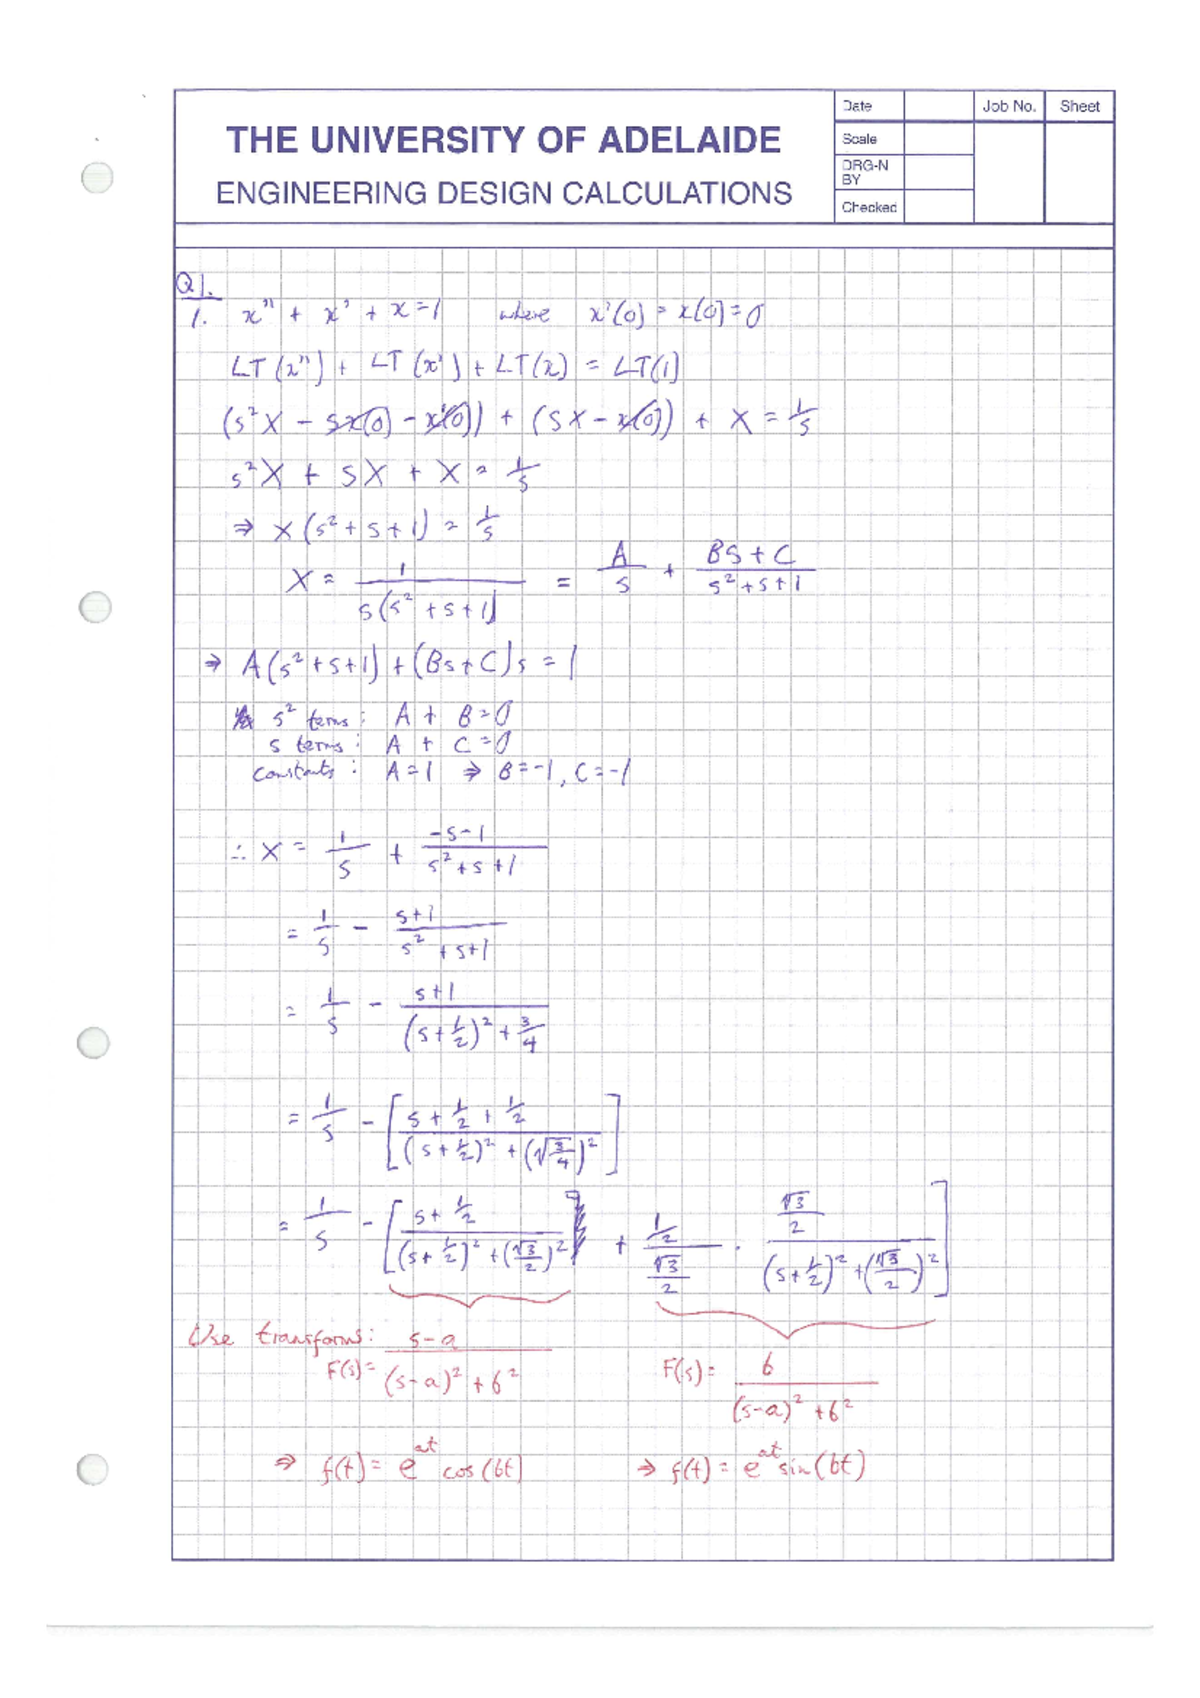 THE UNIVERSITY OF ADELAIDE
ENGINEERING DESIGN CALCULATIONS
Date
Scale
DRG-N BY
Checked
Job No.
Sheet
Q1.
1. x'' + x' + x = 1 where x'(0) = x(0) = 0
LT(x'') + LT(x') + LT(x) = LT(1)
(s²X - sx(0) - x'(0)) + (sX - x(0)) + X = 1/s
s²X + sX + X = 1/s
⇒ X(s² + s + 1) = 1/s
X = 1/(s(s² + s + 1)) = A/s + (Bs + C)/(s² + s + 1)
⇒ A(s² + s + 1) + (Bs + C)s = 1
s² terms: A + B = 0
s terms: A + C = 0
constants: A = 1 ⇒ B = -1, C = -1
∴ X = 1/s + (-s-1)/(s² + s + 1)
= 1/s - (s+1)/(s² + s+1)
= 1/s - (s+1)/((s+1/2)² + 3/4)
= 1/s - [(s + 1/2 + 1/2)/((s+1/2)² + (√(3/4))²)]
= 1/s - [(s + 1/2)/((s+1/2)² + (√3/2)²) + (1/2)/(√3/2) · (√3/2)/((s+1/2)² + (√3/2)²)]
Use transforms: F(s) = (s-a)/((s-a)² + b²) F(s) = b/((s-a)² + b²)
⇒ f(t) = e^at cos(bt) ⇒ f(t) = e^at sin(bt)